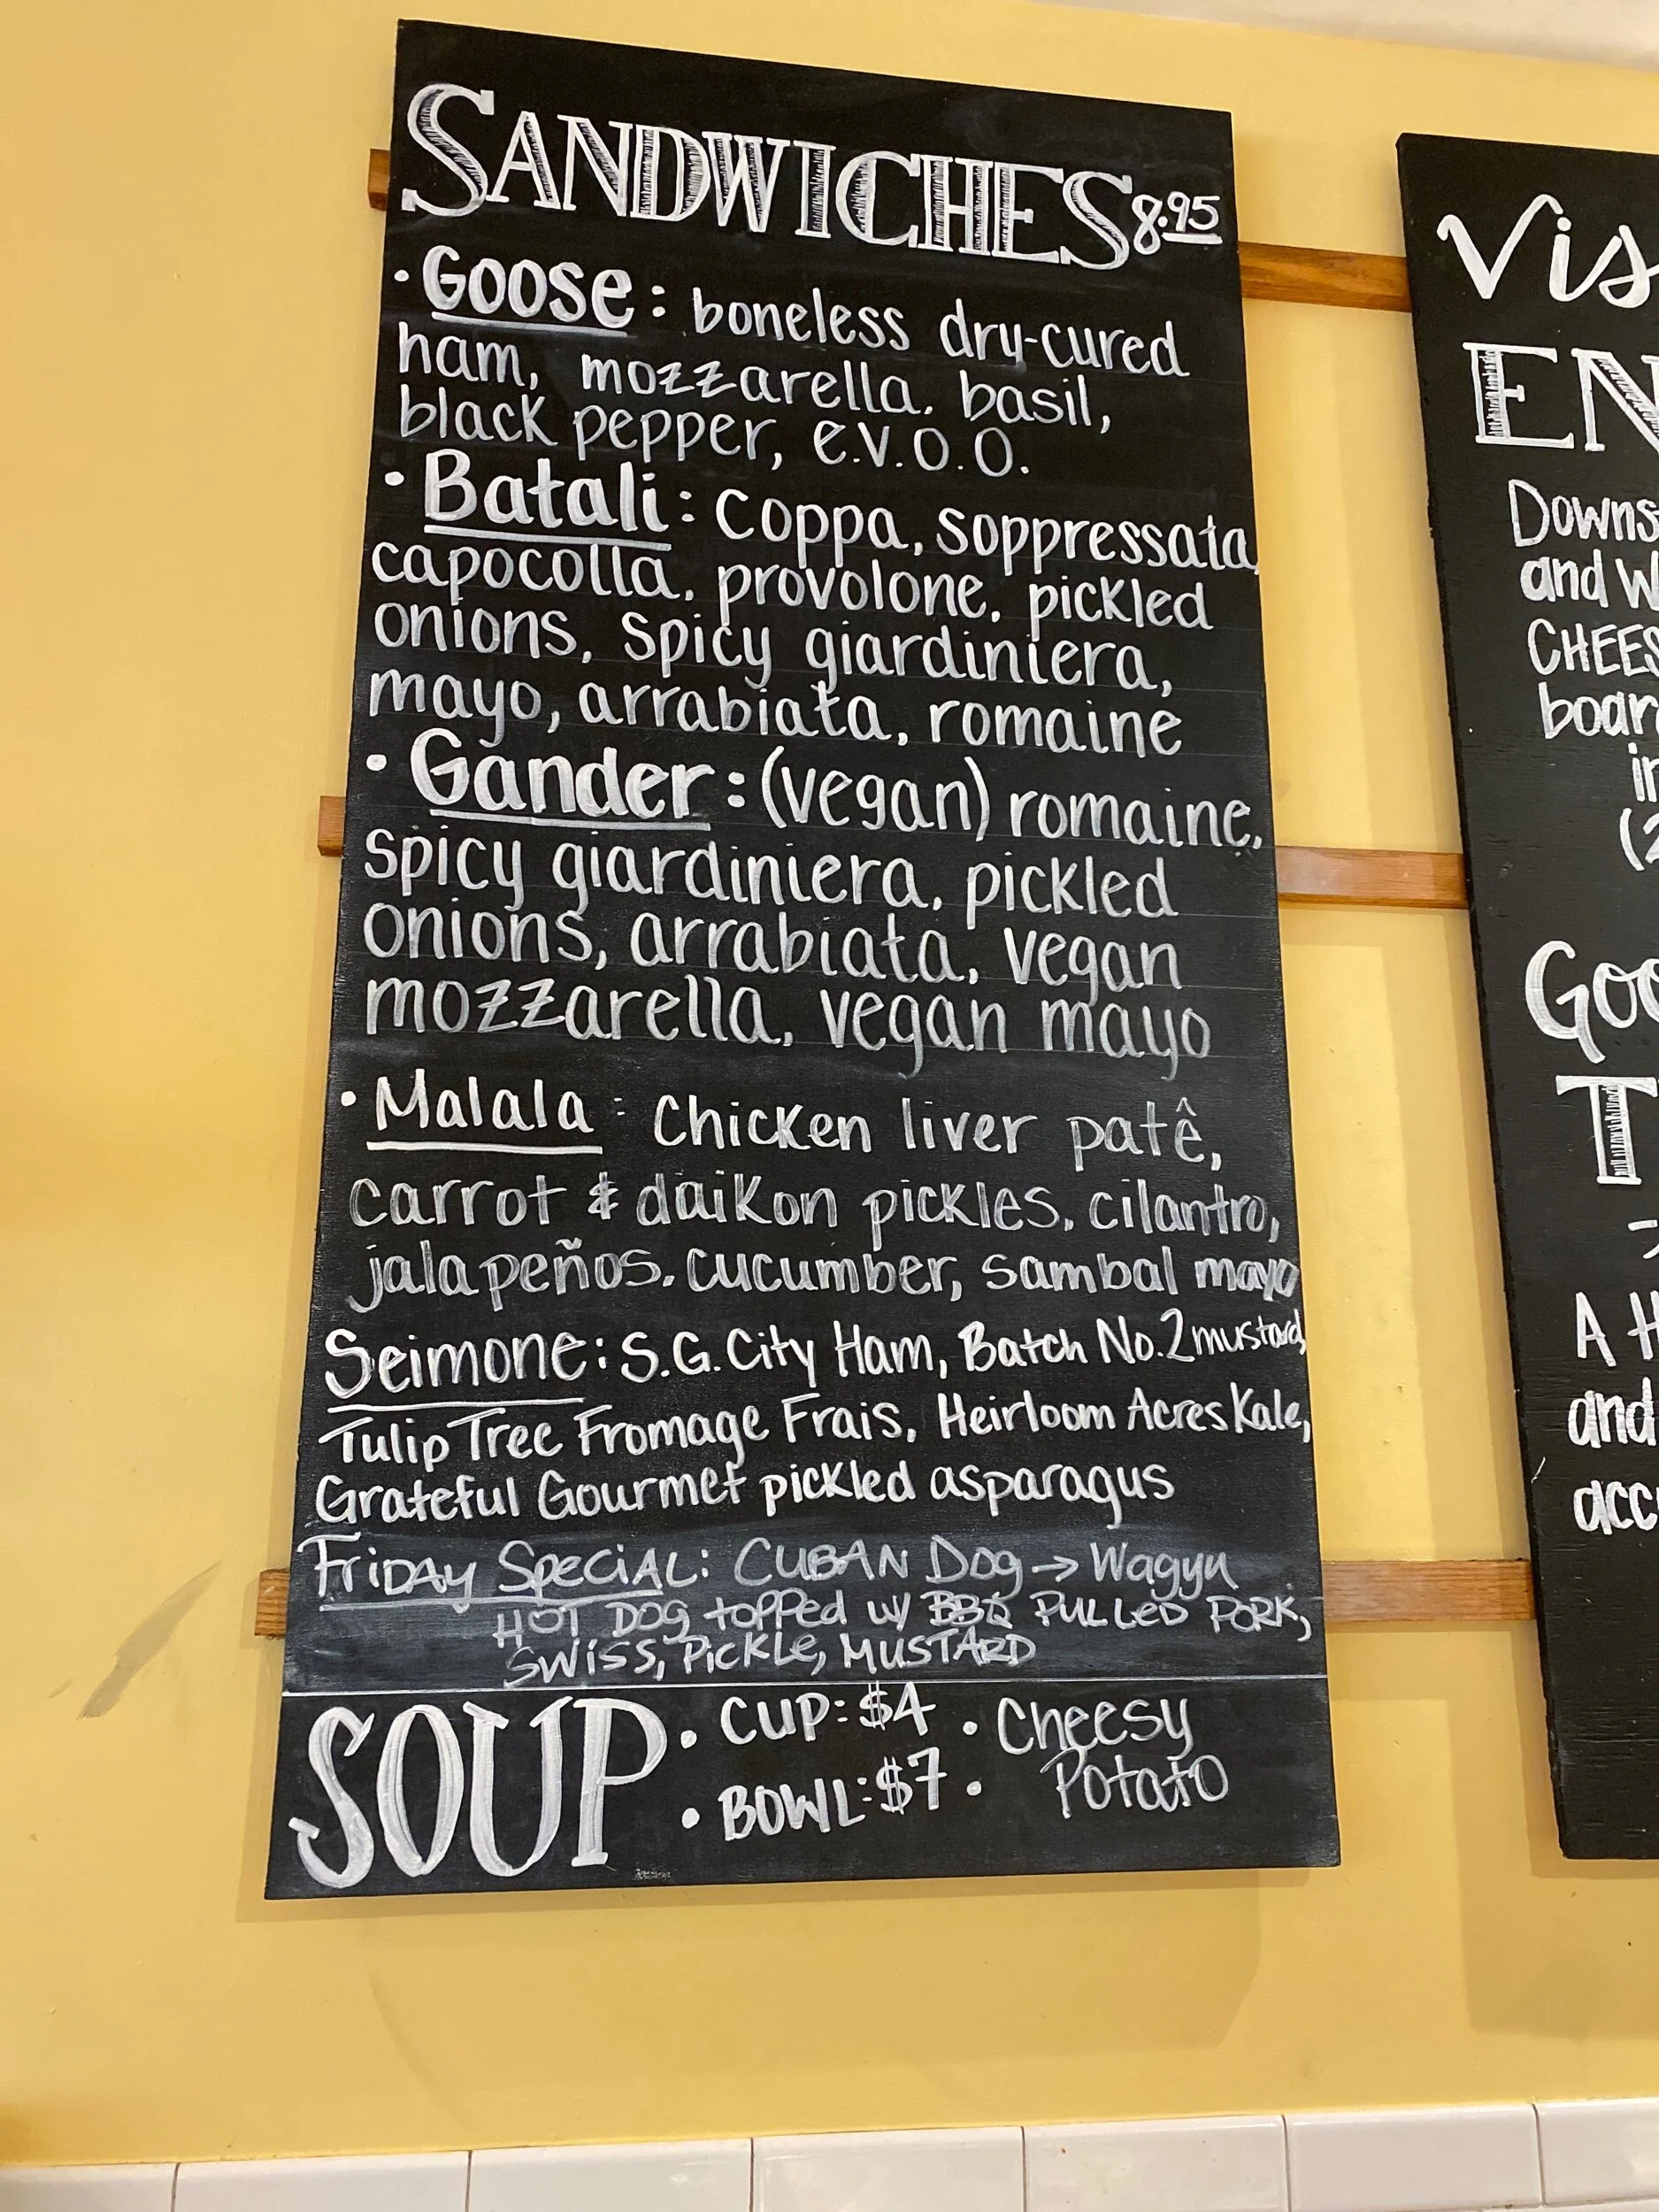 SANDWICHES 8.95
• Goose: boneless dry-cured
ham, mozzarella, basil,
black pepper, e.v.o.o.
• Batali: coppa, soppressata,
capocolla, provolone, pickled
onions, spicy giardiniera,
mayo, arrabiata, romaine
• Gander: (vegan) romaine,
spicy giardiniera, pickled
onions, arrabiata, vegan
mozzarella, vegan mayo
• Malala: Chicken liver patê,
carrot & daikon pickles, cilantro,
jalapeños, cucumber, sambal mayo
Seimone: S.G. City Ham, Batch No. 2 mustard,
Tulip Tree Fromage Frais, Heirloom Acres Kale,
Grateful Gourmet pickled asparagus
FRIDAY SPECIAL: CUBAN DOG → Wagyu
HOT DOG topped w/ BBQ PULLED PORK,
SWISS, PICKLE, MUSTARD
SOUP • CUP: $4 • Cheesy
• BOWL: $7 • Potato
Vis
EN
Downs
and W
CHEES
board
in
(2
Goo
T
A H
and
acc